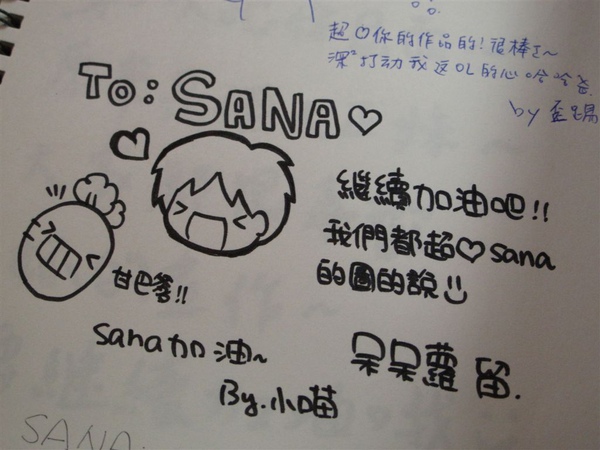 超♡你的作品的!很棒ㄛ~
深²打动我这OL的心哈哈
by
To:SANA♡
繼續加油吧!!
我們都超♡sana
的圖的說
甘巴爹!!
sana加油~
呆呆蘿 留.
By.小喵
SANA.